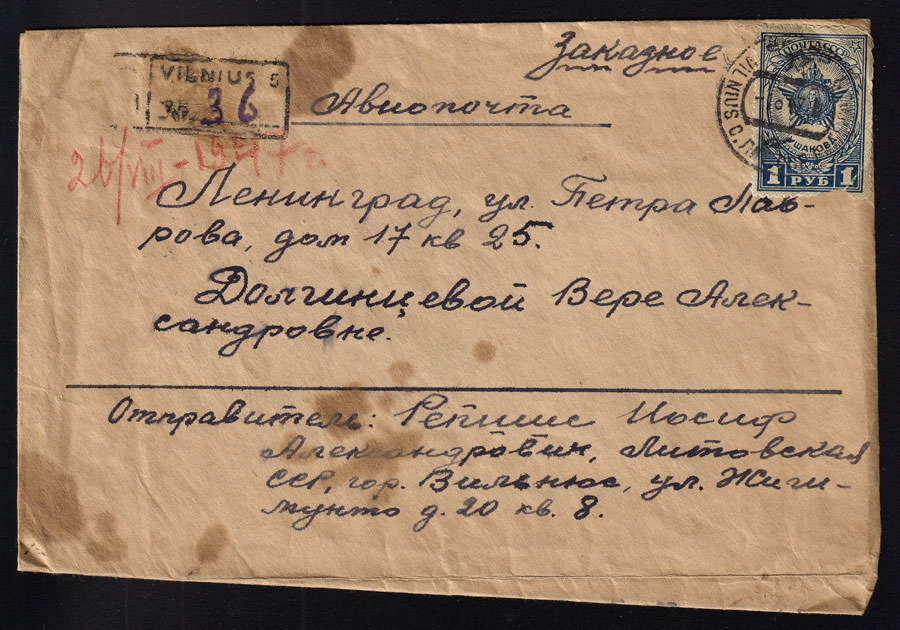 Заказное
VILNIUS 5
36
Авиопочта
ПОЧТА СССР
УШАКОВ
1 РУБ 1
VILNIUS
26/VIII-1947 г.
Ленинград, ул. Петра Лав-
рова, дом 17 кв 25.
Долгинцевой Вере Алек-
сандровне.
Отправитель: Репшис Иосиф
Александрович, Литовская
ССР, гор. Вильнюс, ул. Жиги-
мунто д. 20 кв. 8.